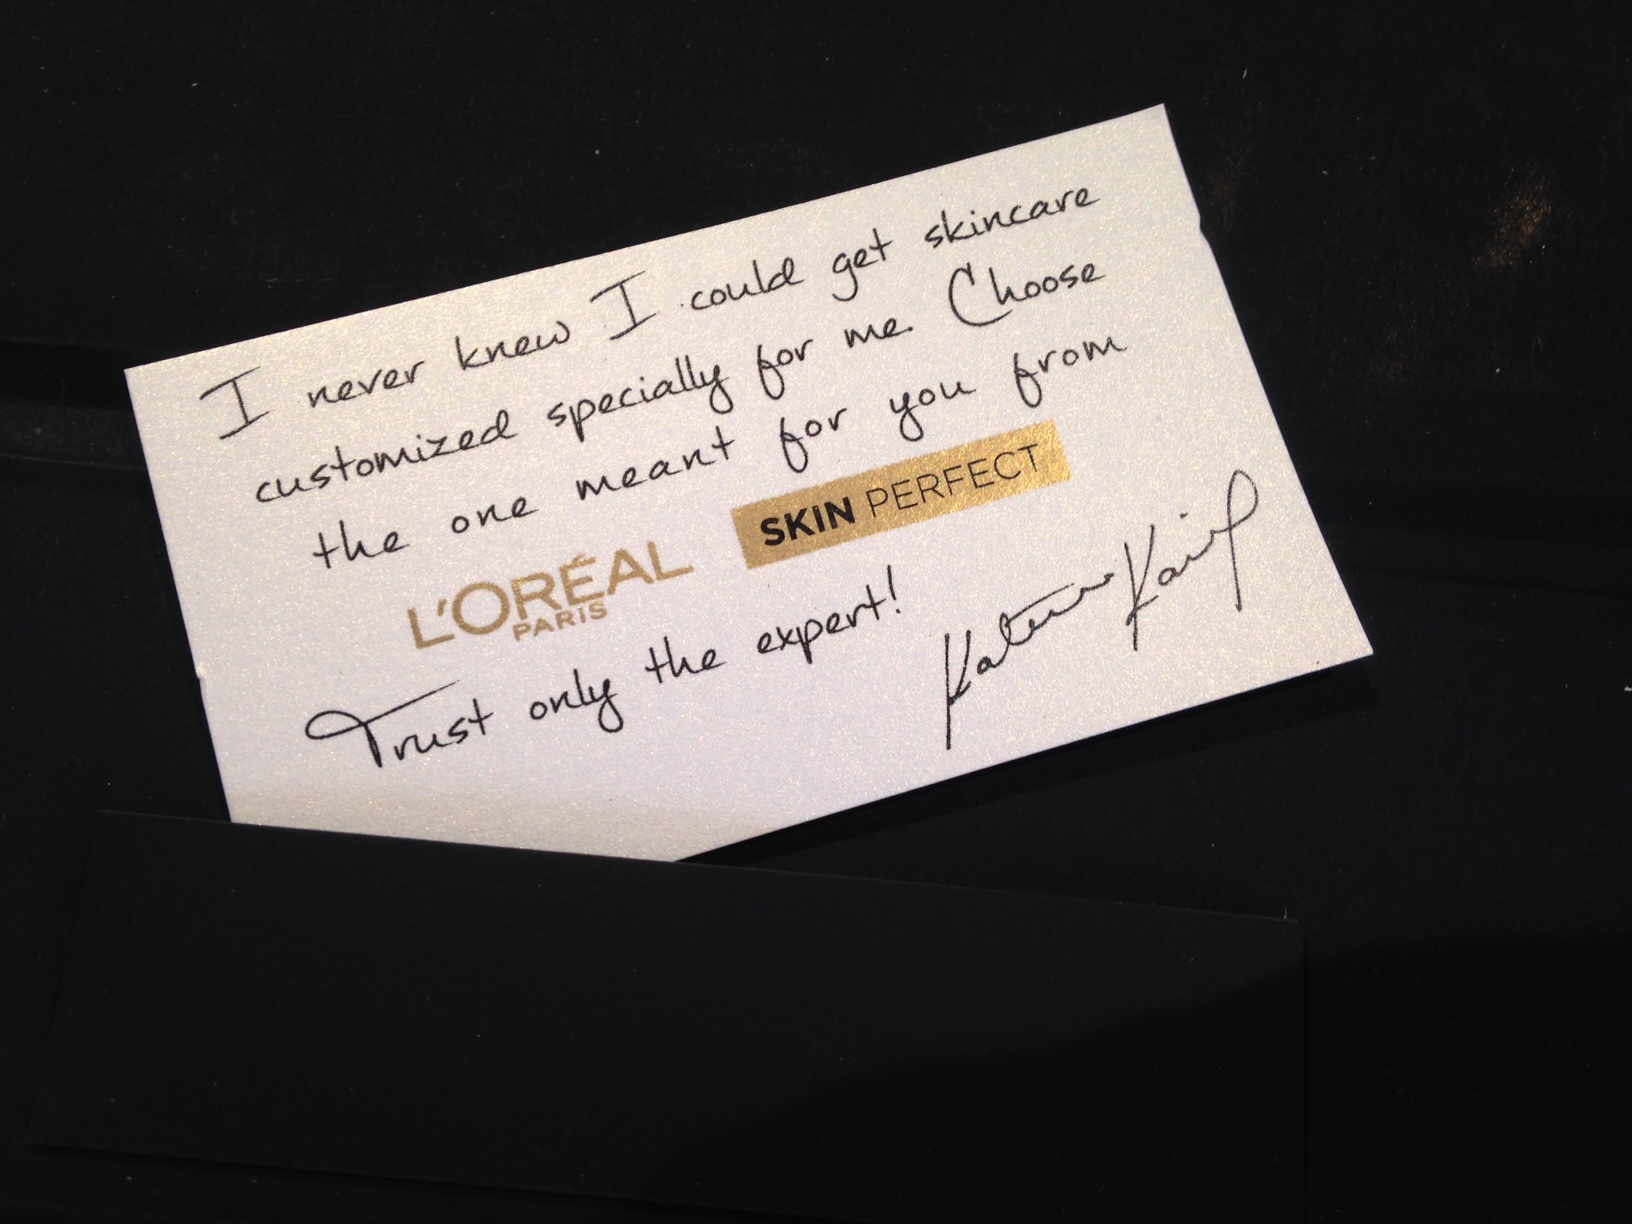 I never knew I could get skincare
customized specially for me. Choose
the one meant for you from
L'ORÉAL
PARIS
SKIN PERFECT
Trust only the expert!
Katrina Kaif